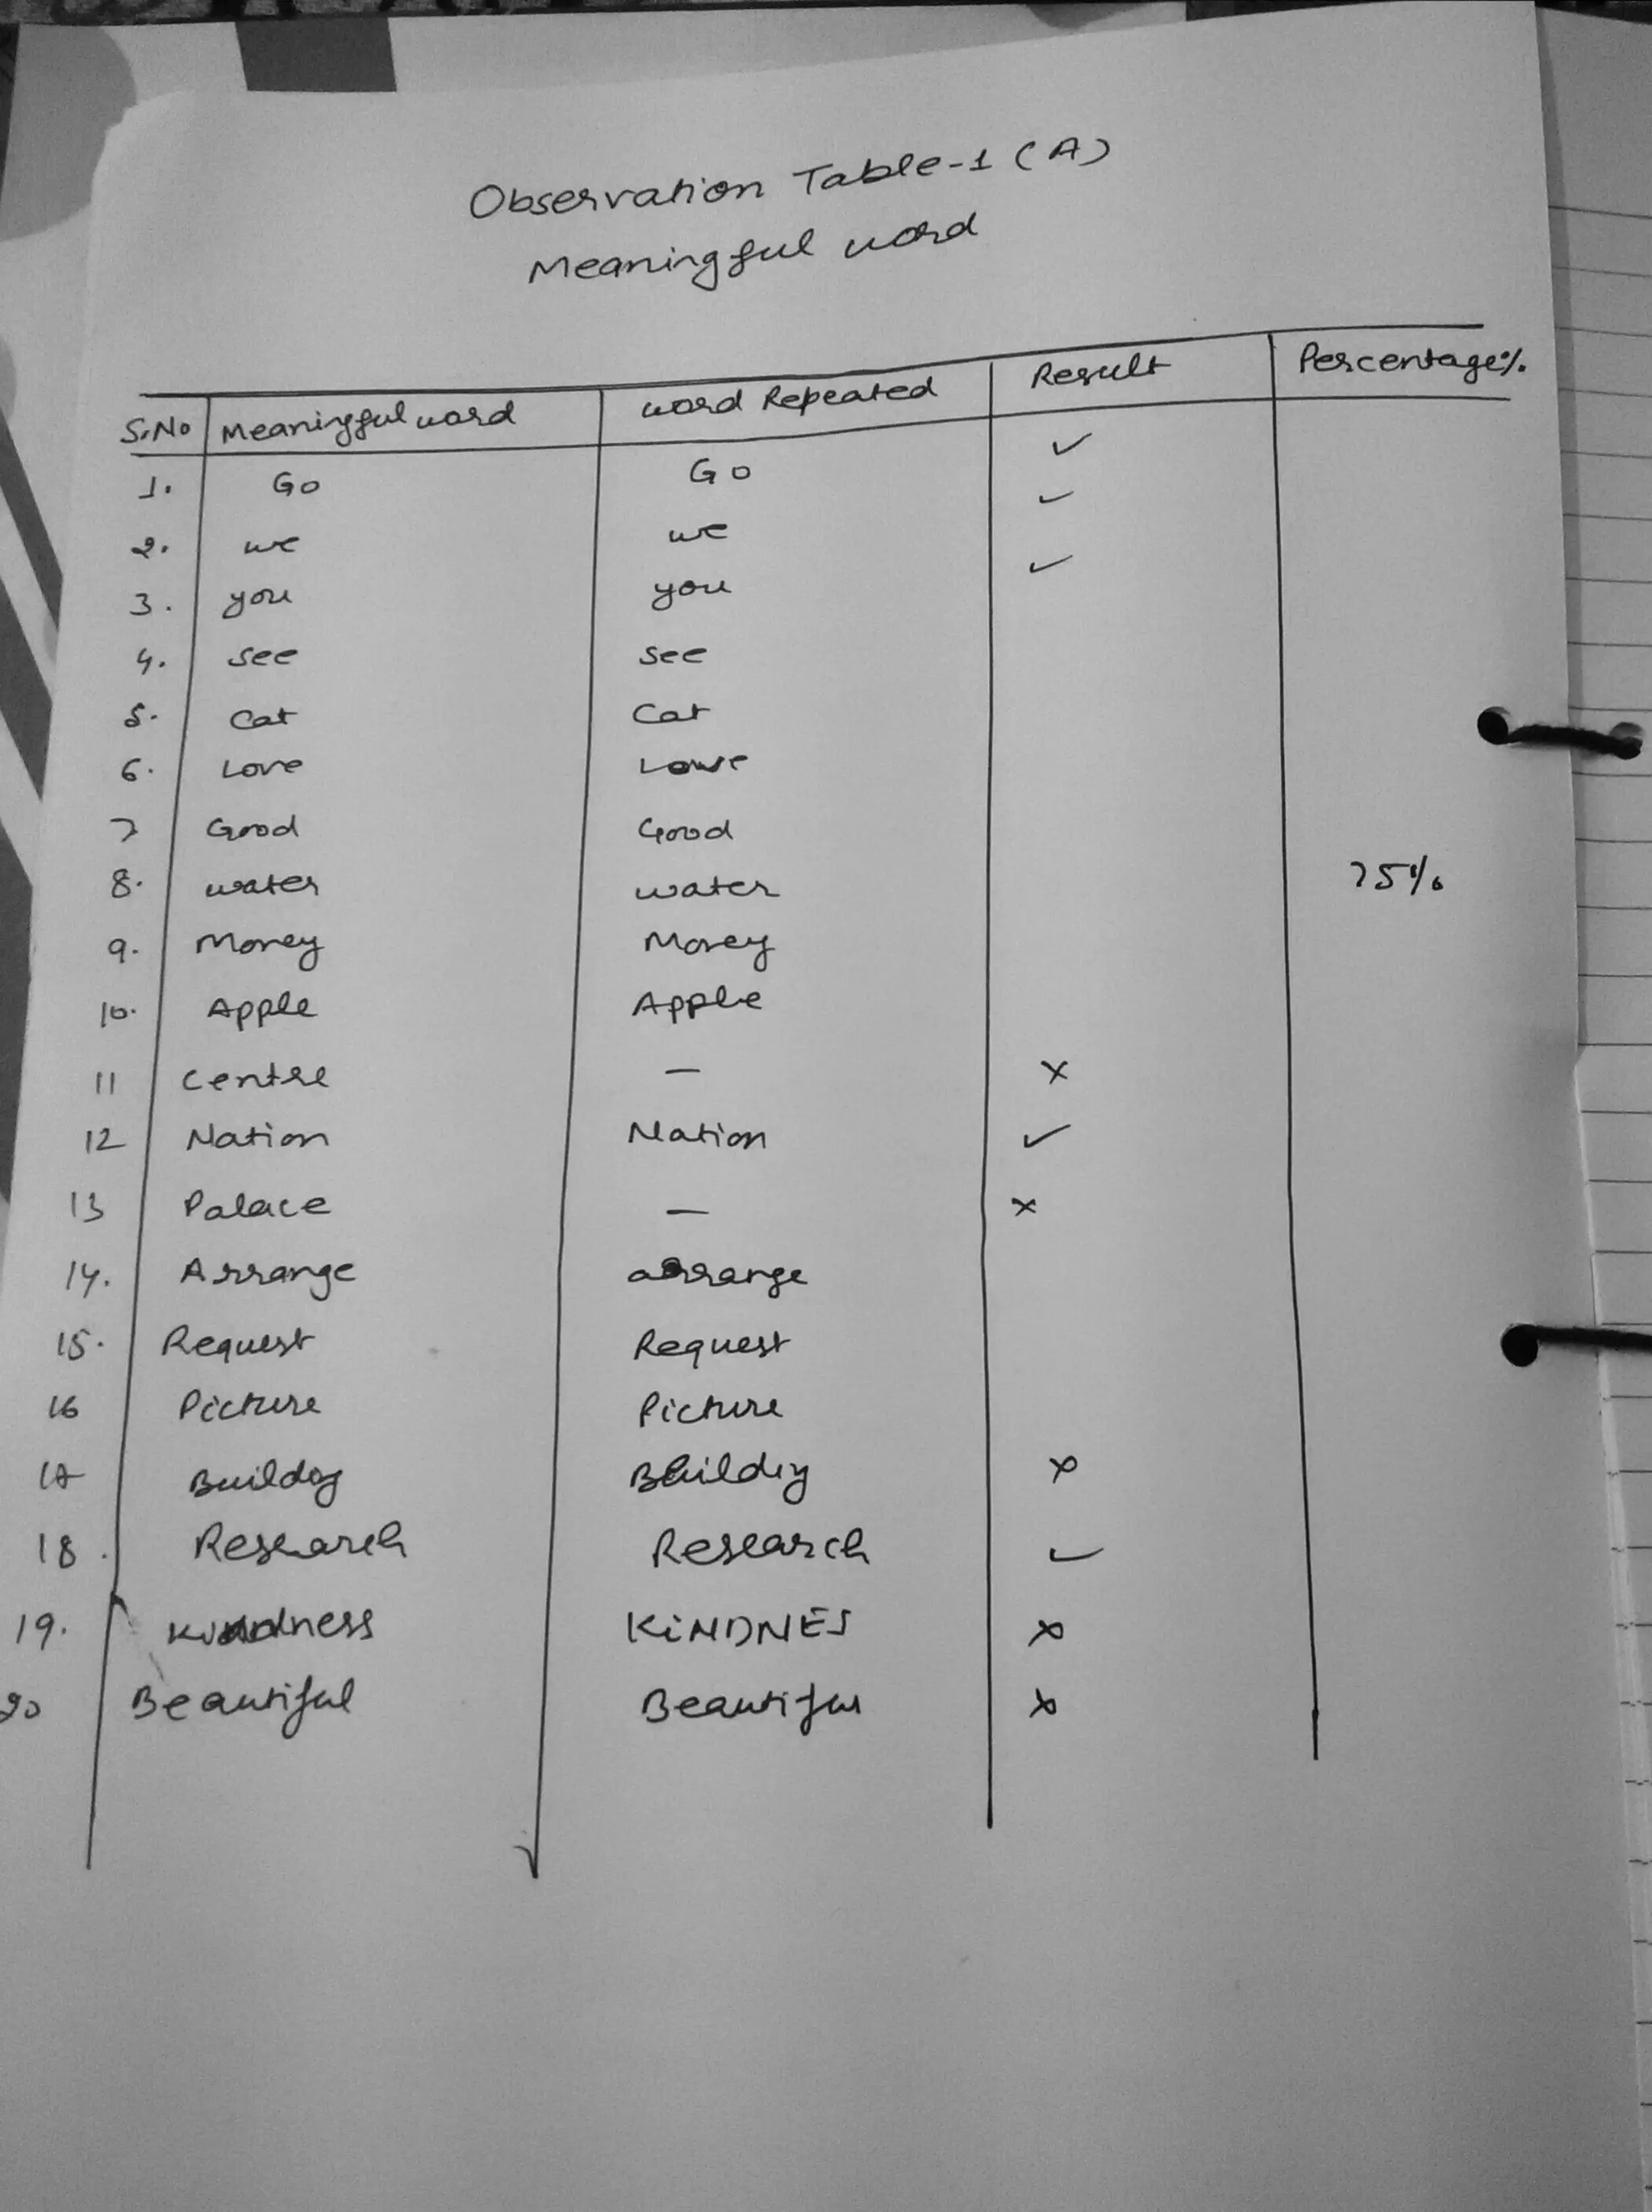 Observation Table-1 (A)
Meaningful word
S.No Meaningful word word Repeated Result Percentage%
1. Go Go ✓
2. we we ✓
3. you you ✓
4. see see
5. Cat Cat
6. Love
7 Good Good
8. water water 75%
9. Money Money
10. Apple Apple
11 Centre — ×
12 Nation Nation ✓
13 Palace — ×
14. Arrange arrange
15. Request Request
16 Picture Picture
17 ×
18. Research Research ✓
19. Kindness KiNDNES ×
20 Beautiful Beautiful ×